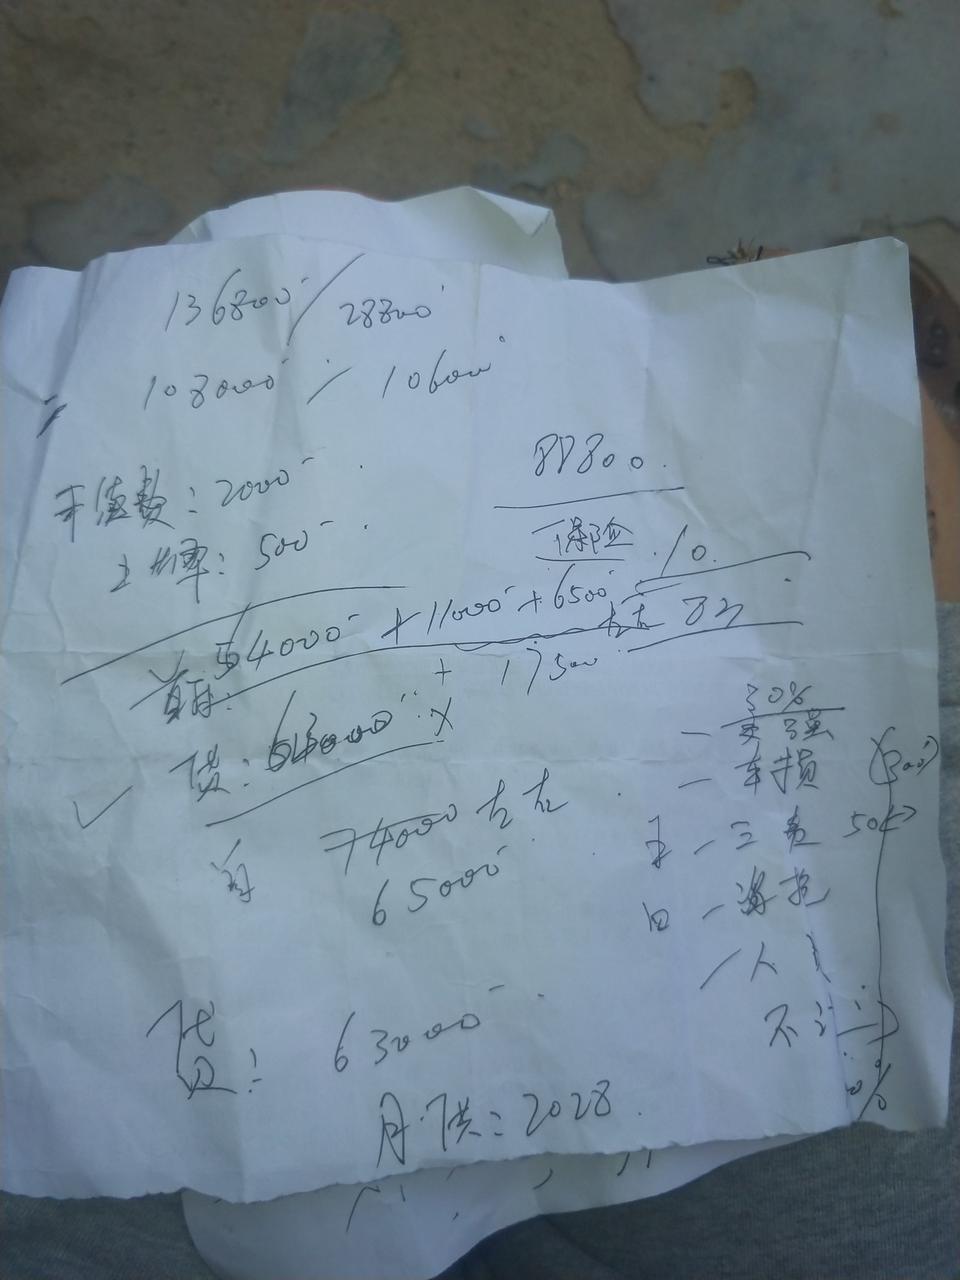 136800 / 28800
108000 / 106000
88800
手续费：2000
上牌：500
保险 10
54000 + 11000 + 6500 左右
首付：
+ 17500
30%
贷：63000 X
一 交强
一 车损
首 74000 左右
一 三责 50
65000
一 盗抢
一 人
不计
贷：63000
月供：2028